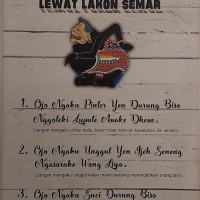 LEWAT LAKON SEMAR
1. Ojo Ngaku Pinter Yen Durung Biso
Nggoleki Lupute Awake Dhewe.
(Jangan mengaku pintar kalau belum bisa mencari kesalahan diri sendiri)
2. Ojo Ngaku Unggul Yen Ijeh Seneng
Ngasorake Wong Liyo.
(Jangan mengaku unggul kalau masih senang merendahkan orang lain)
3. Ojo Ngaku Suci Durung Biso